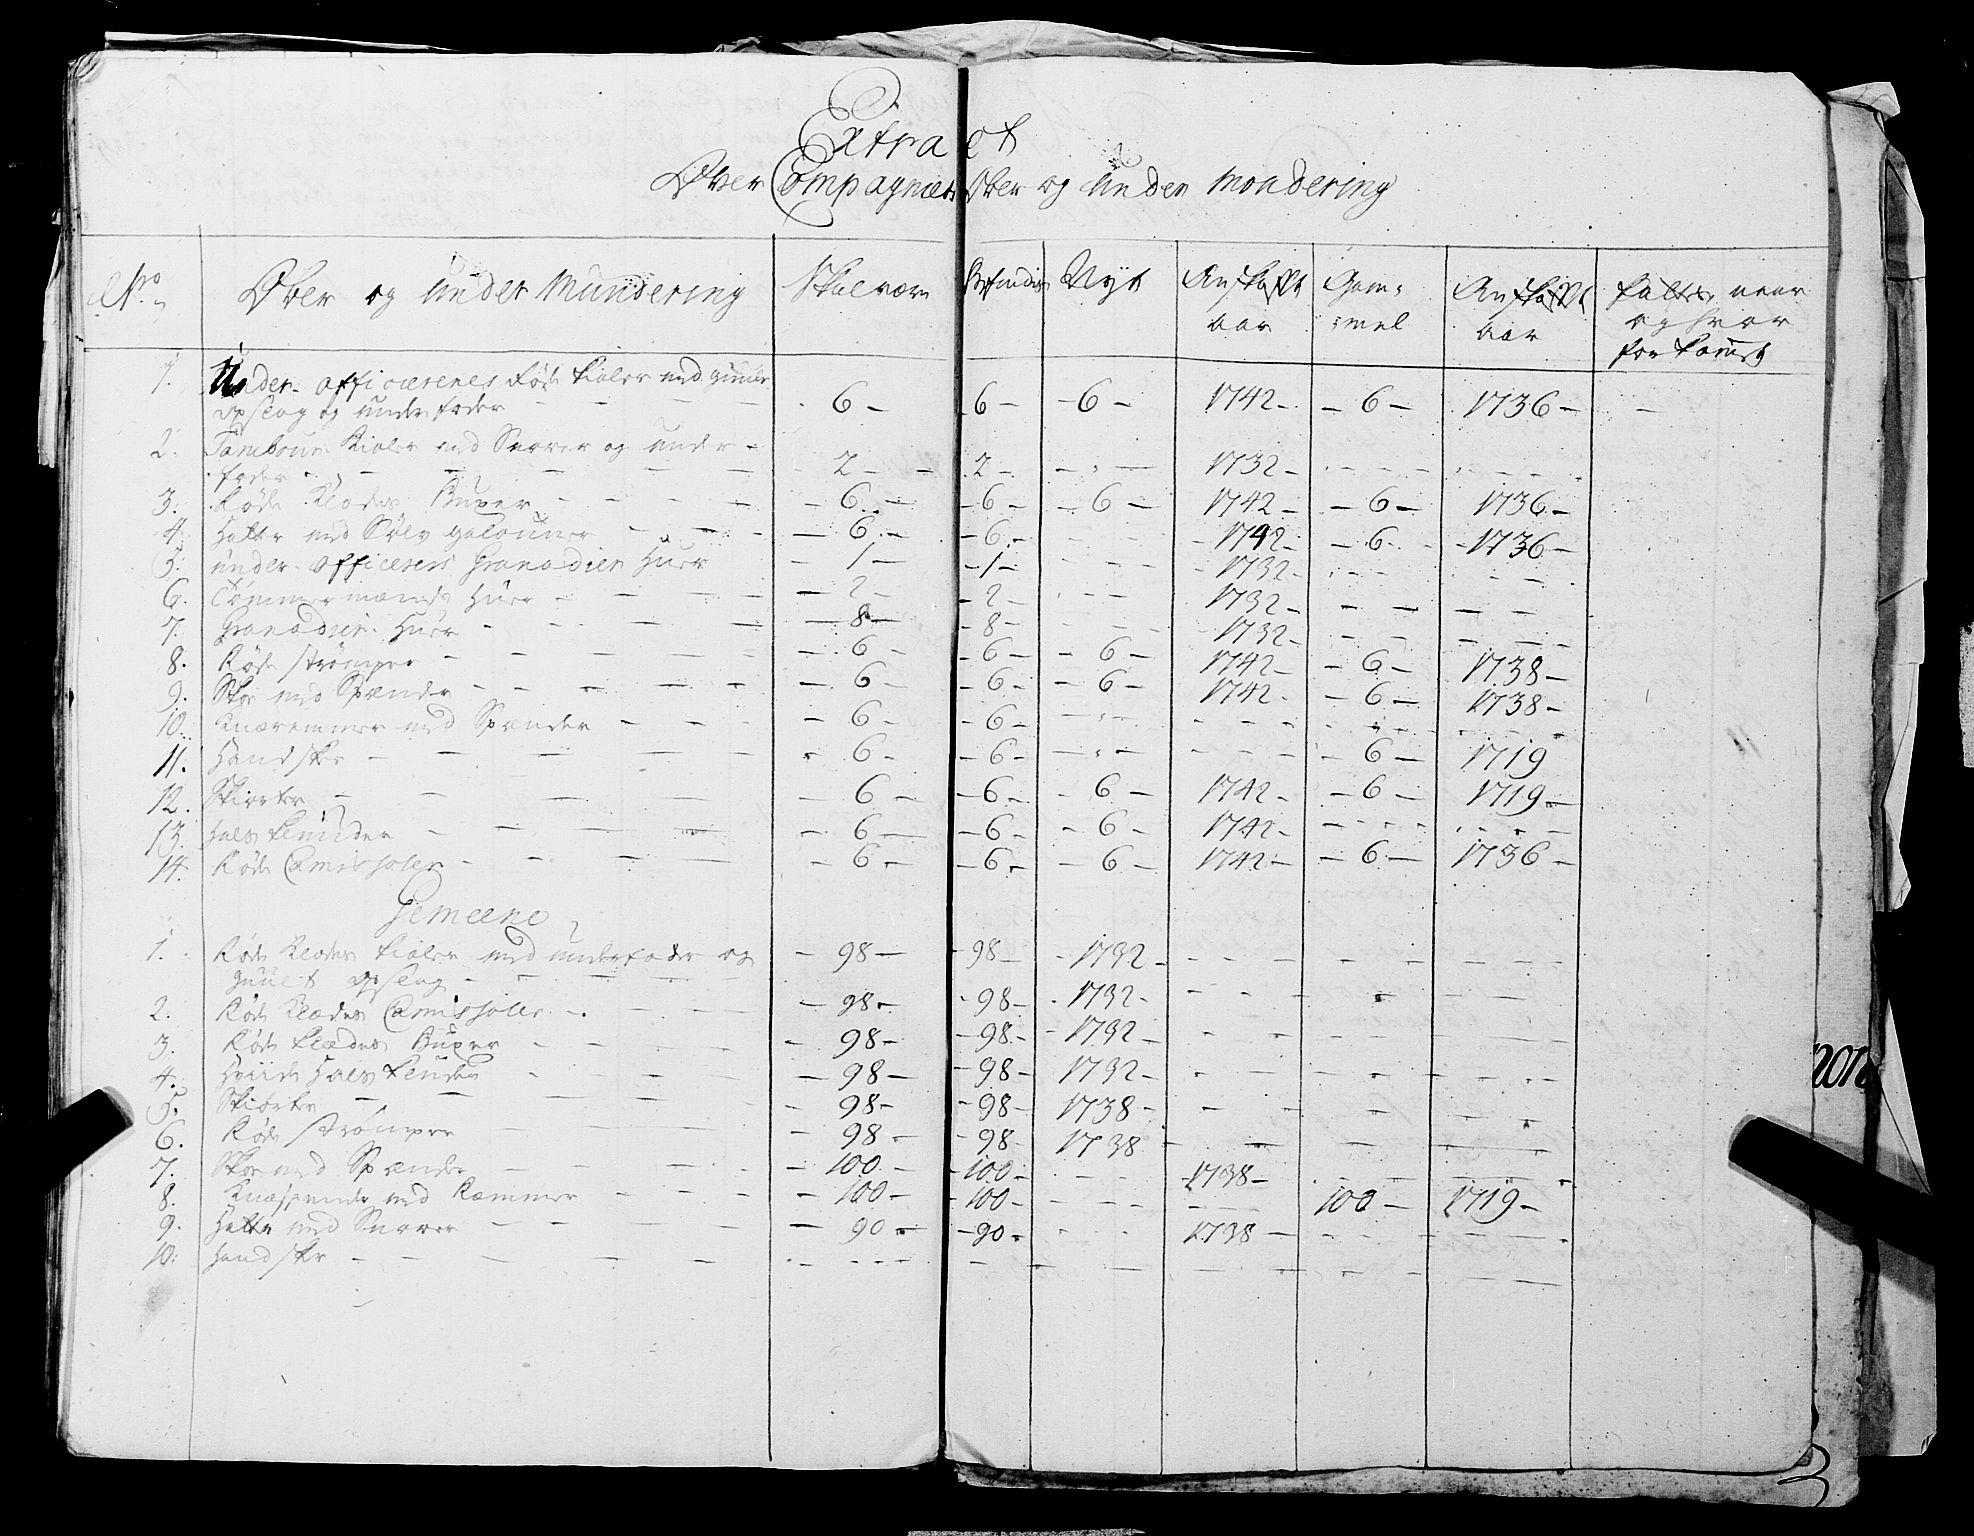 Extract
Over Compagniets Ober og Under Mondering
No. Ober og Under Mundering Skal være Befindes Nyt Anskafft aar Gam: :mel Anskafft aar naar og hvor for komst
1. Under-officerernes Røde Kioler med guule
opslag og underfoder 6 6 6 1742 6 1736
2. Tambour Kioler med Snorer og under-
foder 2 2 1732
3. Røde Klædes Buxer 6 6 6 1742 6 1736
4. Hatte med Sølv galouner 6 6 1742 6 1736
5. under-officerers Granadier Huer 1 1 1732
6. Tømmermænds Huer 2 2 1732
7. Granadier Huer 8 8 1732
8. Røde strømper 6 6 6 1742 6 1738
9. Skoe med Spænder 6 6 6 1742 6 1738
10. Knæremmer med Spænder 6 6
11. Handsker 6 6 6 1719
12. Skiorter 6 6 6 1742 6 1719
13. Hals Kluuder 6 6 6 1742
14. Røde Camisoler 6 6 6 1742 6 1736
Gemeene
1. Røde Klædes Kioler med underfoder og 98 98 1732
guult opslag
2. Røde Klædes Camisoler 98 98 1732
3. Røde Klædes Buxer 98 98 1732
4. Hviide Hals Kluder 98 98 1732
5. Skiorter 98 98 1738
6. Røde strømper 98 98 1738
7. Skoe med Spænder 100 100 1738
8. Knæspænder med Ræmmer 100 100 100 1719
9. Hatte med Snorer 90 90 1738
10. Handsker